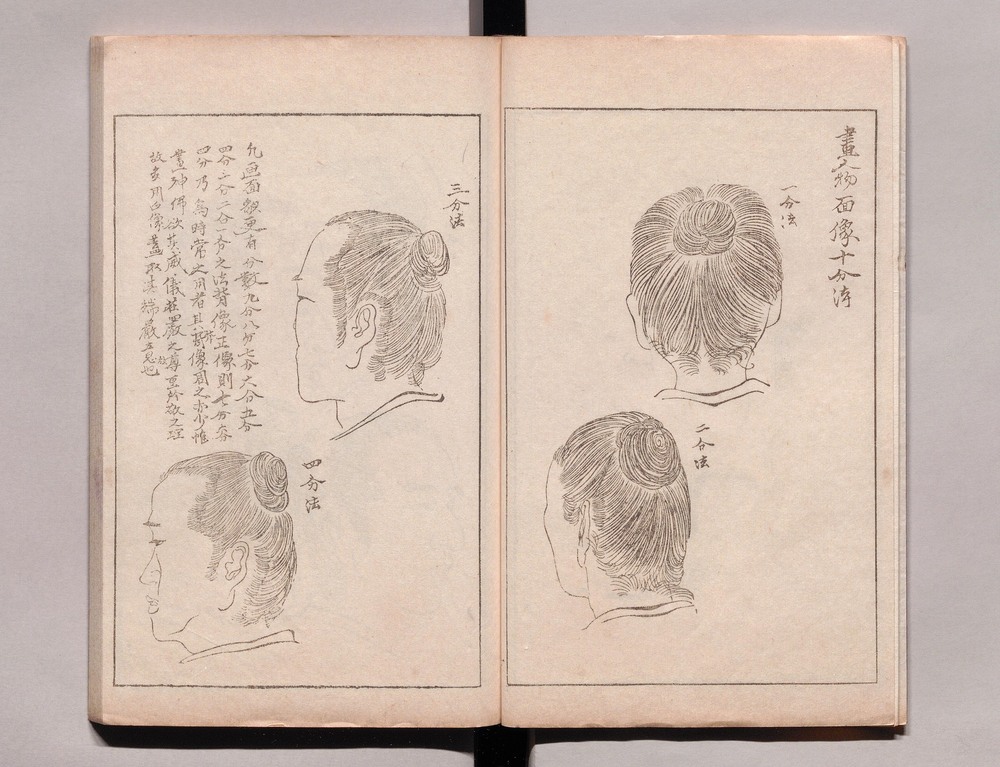 畫人物面像十分法
一分法
二分法
三分法
四分法
凡画面貌更有分數九分八分七分六分五分
四分三分二分一分之法背像正像則七分六分
四分乃為時常之用者其背像間之亦少惟
畫神佛欲其威儀莊嚴之尊至於敬之
故多用正像蓋取其端嚴也